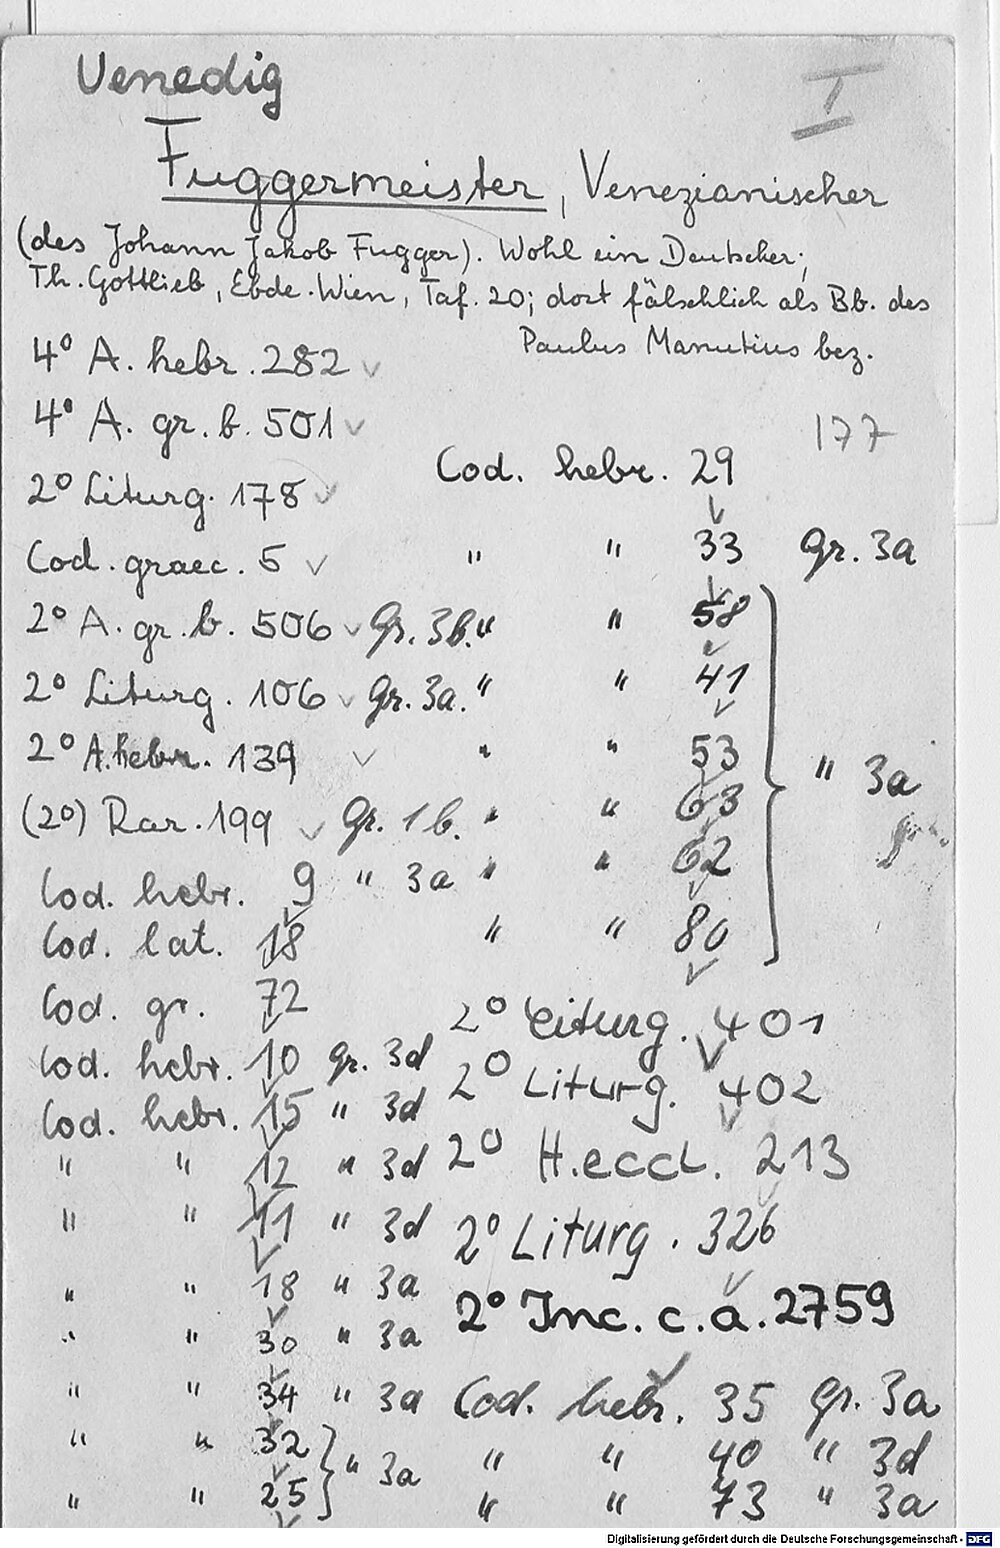 Venedig
I
Fuggermeister, Venezianischer
(des Johann Jakob Fugger). Wohl ein Deutscher;
Th. Gottlieb, Ebde. Wien, Taf. 20; dort fälschlich als Bb. des
Paulus Manutius bez.
4° A. hebr. 282 ✓
4° A. gr. b. 501 ✓
177
2° Liturg. 178 ✓
Cod. graec. 5 ✓
2° A. gr. b. 506 ✓ Gr. 3b.
2° Liturg. 106 ✓ Gr. 3a.
2° A. hebr. 139 ✓
(2°) Rar. 199 ✓ Gr. 1b.
Cod. hebr. 9 " 3a
✓
Cod. lat. 18
Cod. gr. 72
✓
Cod. hebr. 10 Gr. 3d
✓
Cod. hebr. 15 " 3d
✓
" " 12 " 3d
✓
" " 11 " 3d
✓
" " 18 " 3a
✓
" " 30 " 3a
✓
" " 34 " 3a
✓
" " 32 } " 3a
✓
" " 25
✓
Cod. hebr. 29
✓
" " 33 Gr. 3a
✓
" " 58
✓
" " 41
✓
" " 53 } " 3a
✓
" " 63
✓
" " 62
✓
" " 80
✓
2° Liturg. 401
✓
2° Liturg. 402
✓
2° H. eccl. 213
✓
2° Liturg. 326
✓
2° Inc. c. a. 2759
✓
Cod. hebr. 35 Gr. 3a
" " 40 " 3d
" " 73 " 3a
Digitalisierung gefördert durch die Deutsche Forschungsgemeinschaft - DFG